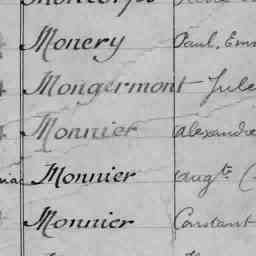 Monery Paul, Em
Mongermont Jule
Monnier alexandre
Monnier aug.te
Monnier Constant